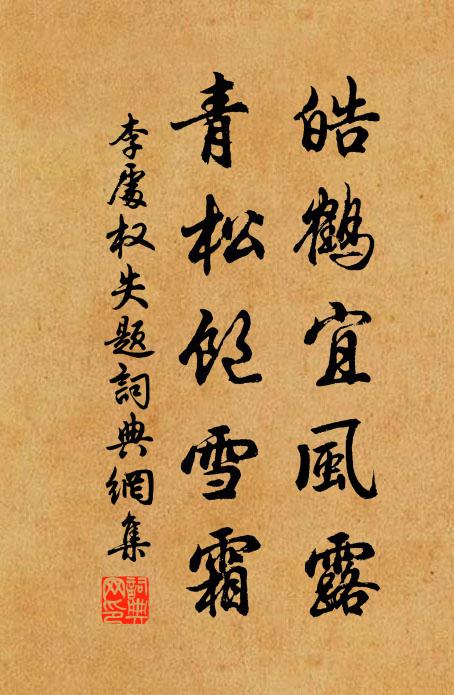 皓鶴宜風露
青松飽雪霜
李處权失題詞典網集
詞典
网印